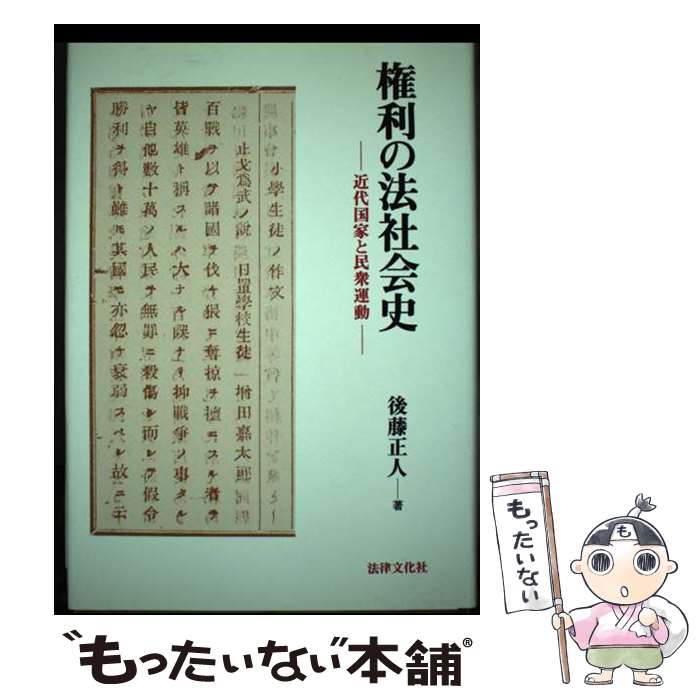 権利の法社会史
―近代国家と民衆運動―
後藤正人―著
法律文化社
小學生徒ノ作文
止戈爲武ノ説 日置學校生徒 増田嘉太郎
百戰ヲ以テ諸國ヲ伐チ猥ニ奪掠ヲ擅ニスル者ヲ
皆英雄ト稱スルハ大ナル誤ナリ抑戰爭ノ事タル
ヤ自他數十萬ノ人民ヲ無罪ニ殺傷シ而シテ假令
勝利ヲ得ト雖ㇺ其國モ亦忽チ衰弱スベシ故ニ云
も
もったいない
“もったいない本舗”®